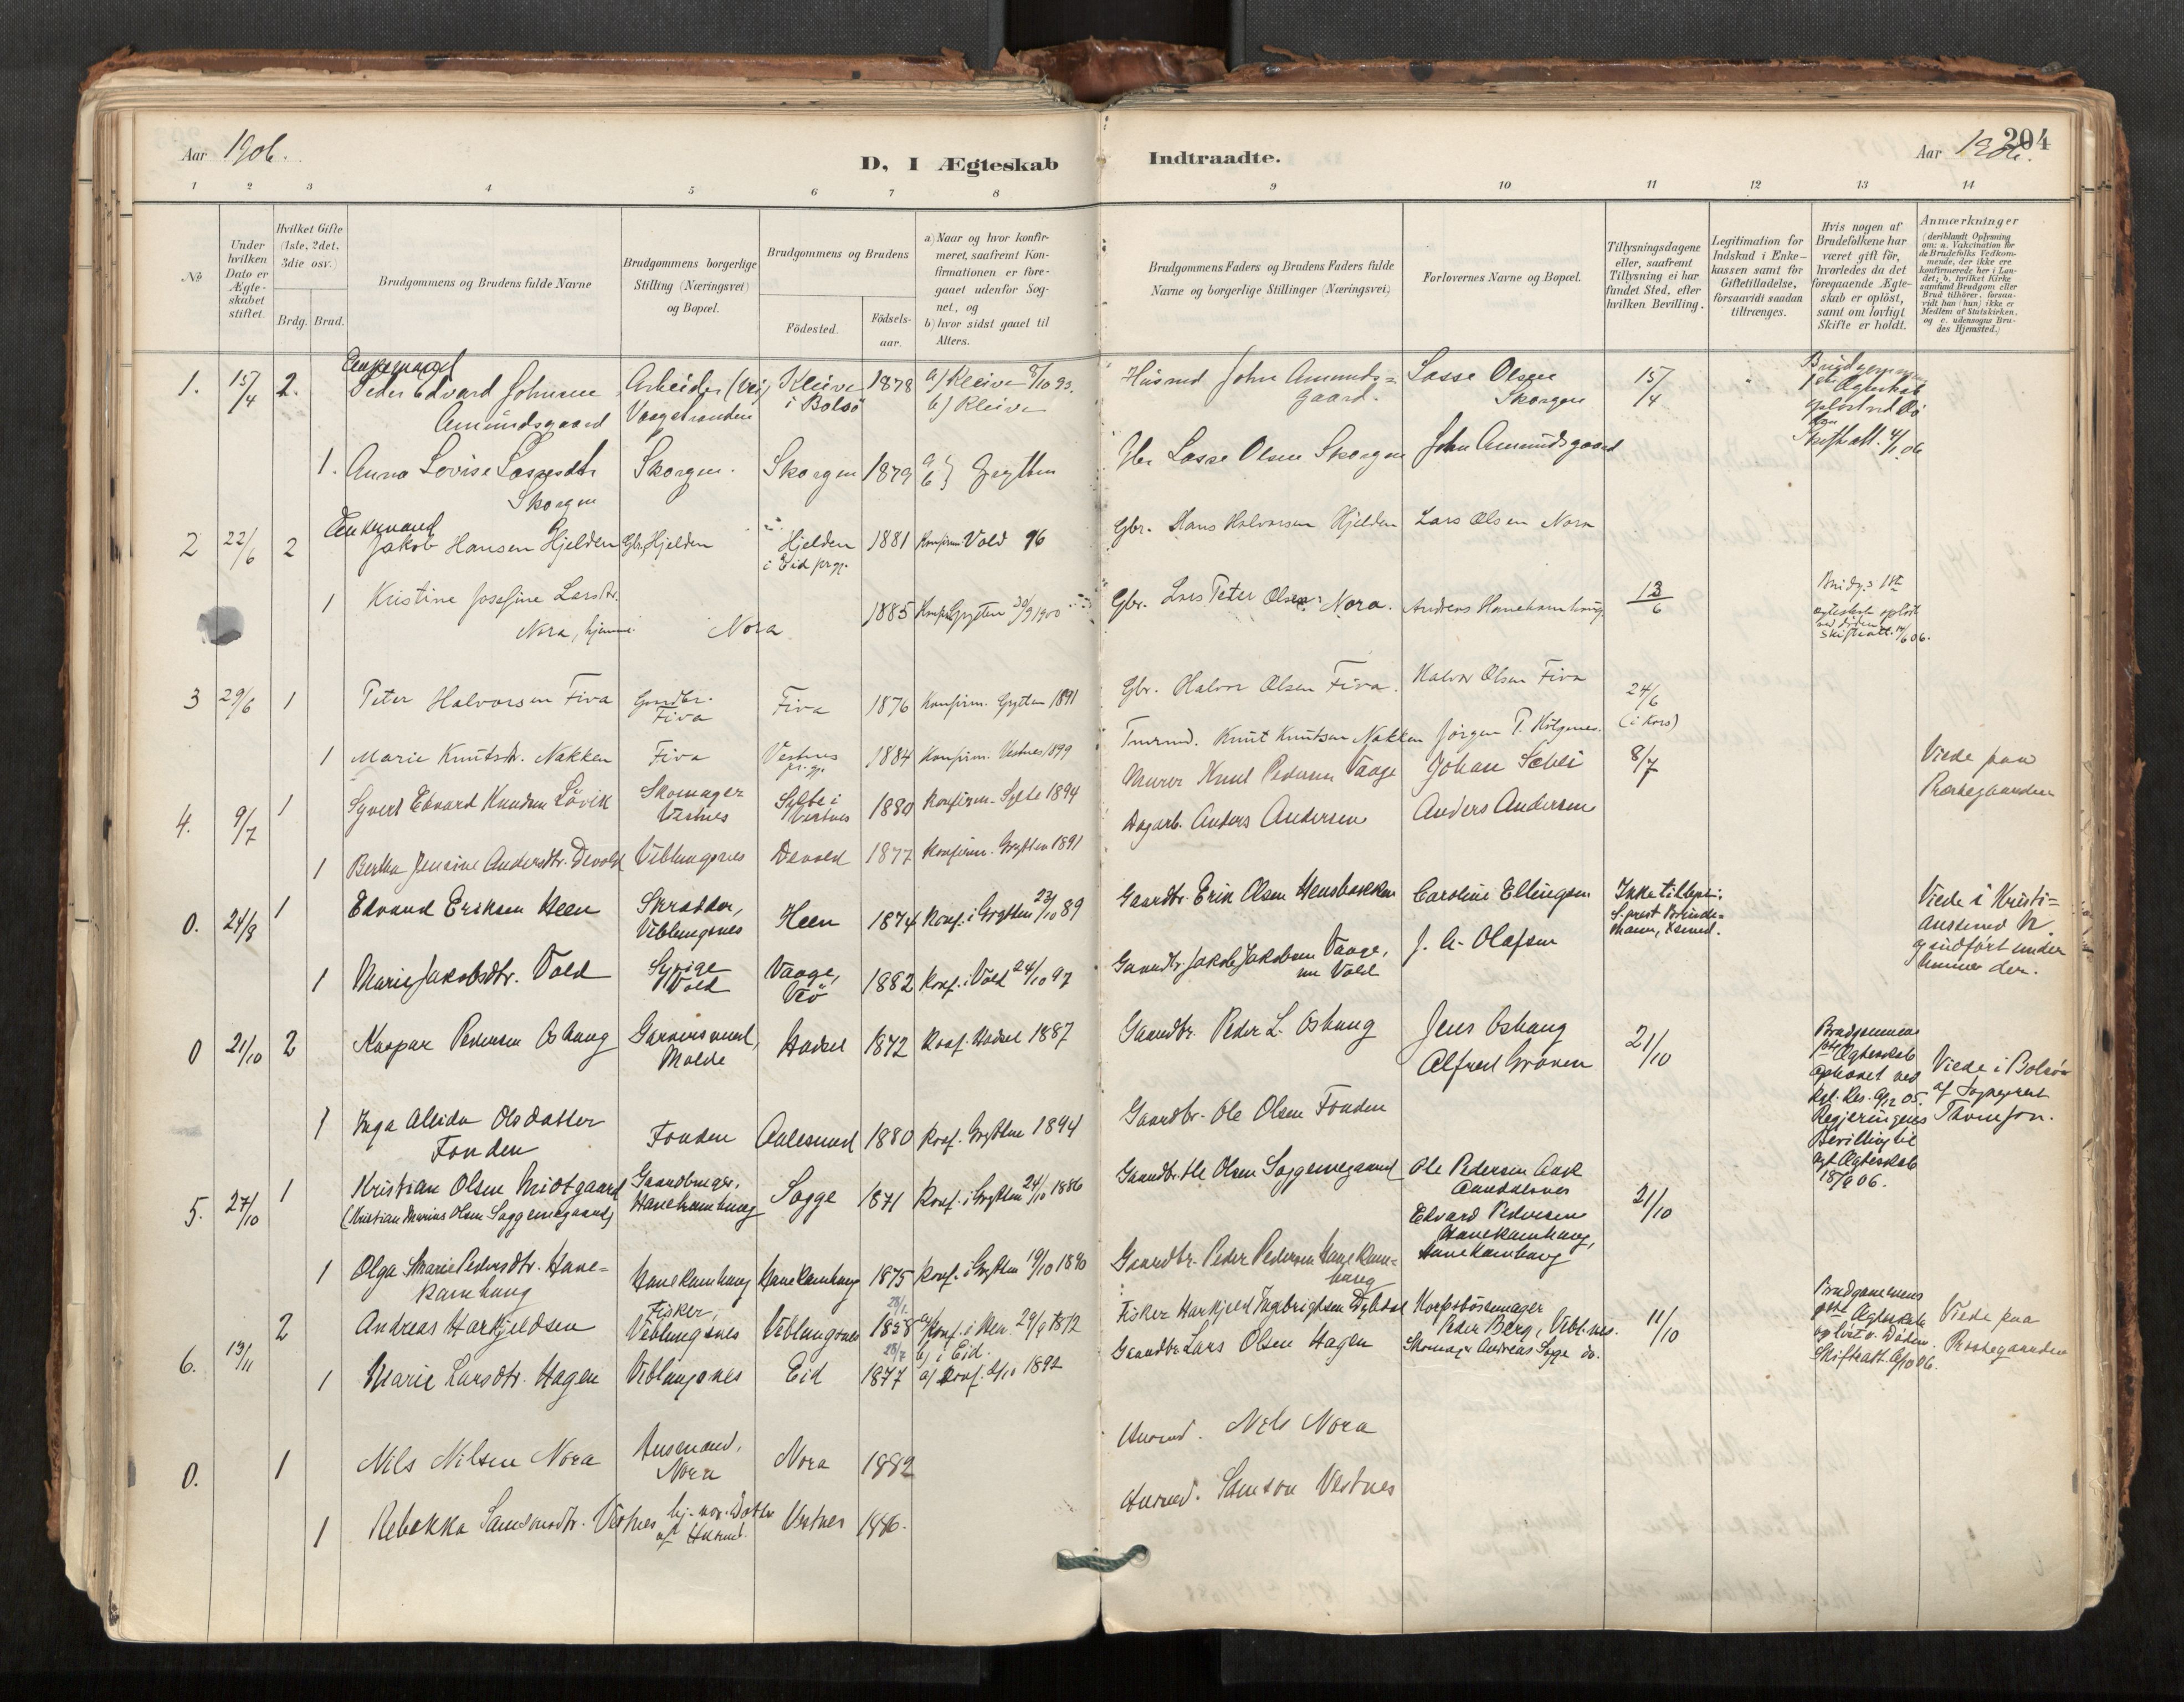 Aar 1906.
D, I Ægteskab
Indtraadte.
Aar 1906.
204
1 2 3 4 5 6 7 8 9 10 11 12 13 14
No
Under hvilken Dato er Ægteskabet stiftet.
Hvilket Gifte (1ste, 2det, 3die osv.)
Brdg. Brud.
Brudgommens og Brudens fulde Navne
Brudgommens borgerlige Stilling (Næringsvei) og Bopæl.
Brudgommens og Brudens
Födested.
Födselsaar.
a) Naar og hvor konfirmeret, saafremt Konfirmationen er foregaaet udenfor Sognet, og
b) hvor sidst gaaet til Alters.
Brudgommens Faders og Brudens Faders fulde Navne og borgerlige Stillinger (Næringsvei)
Forlovernes Navne og Bopæl.
Tillysningsdagene eller, saafremt Tillysning ei har fundet Sted, efter hvilken Bevilling.
Legitimation for Indskud i Enkekassen samt for Giftetilladelse, forsaavidt saadan tiltrænges.
Hvis nogen af Brudefolkene har været gift för, hvorledes da det foregaaende Ægteskab er oplöst, samt om lovligt Skifte er holdt.
Anmærkninger
(deriblandt Oplysning om: a. Vakcination for de Brudefolks Vedkommende, der ikke ere konfirmerede her i Landet; b. hvilket Kirkesamfund Brudgom eller Brud tilhörer, forsaavidt han (hun) ikke er Medlem af Statskirken, og c. udensogns Brudes Hjemsted.)
Enkemand
1. 15/4 2. Peder Edvard Johnsen Amundsgaard
Arbeider (Vei) Vaagstranden
Kleive i Bolsö 1878 a) Kleive 8/10 93. b) Kleive
Husmd John Amundsgaard.
Lasse Olsen Skorgen
15/4
Skifteatt. 4/1 06
1. Anna Lovise Lassesdtr Skorgen
Skorgen. Skorgen 1879 a b } Grytten
Gbr Lasse Olsen Skorgen John Amundsgaard
Enkemand
2 22/6 2 Jakob Hansen Hjelden Gbr. Hjelden
Hjelden i Eid prgj. 1881 Konfirm. Vold 96
Gbr. Hans Halvorsen Hjelden Lars Olsen Nora
1 Kristine Josefine Larsdtr. Nora, hjemme Nora
1885 Konf. Grytten 30/9 1900
Gbr. Lars Peter Olsen Nora. Andreas Hanekamhaug
13/6
Brudg.s 1ste ægteskab oplöst ved döden skifteatt. 14/6 06.
3 29/6 1 Peter Halvorsen Fiva Gardbr. Fiva
Fiva 1876 Konfirm. Grytten 1891
Gbr. Halvor Olsen Fiva. Halvor Olsen Fiva
24/6 (i Kors)
1 Marie Knutsdt. Nakken Fiva Vestnes pr.gj. 1884 Konfirm. Vestnes 1899
Knut Knutsen Nakken Jörgen T.
4. 9/7 1 Syvert Edvard Knudsen Lövik
Skomager Vestnes
Sylte i Vestnes 1880 Konfirm. Sylte 1894
Murer Knud Pedersen Vaage Johan Sæbli
8/7
Viede paa Præstegaarden
1 Bertha Jensine Andersdtr. Devold Veblungsnes Devold 1877 Konfirm. Grytten 1891
Dagarb. Anders Andersen Anders Andersen
0. 24/8 1 Edvard Eriksen Heen Skrædder, Veblungsnes
Heen 1874 Konf. i Grytten 23/10 89
Gaardbr. Erik Olsen Hensbakken Caroline Ellingsen
Viede i Kristiansund N. og indfört under Numer der.
1 Marie Jakobsdtr. Vold Syrige Vold
Vaage, Veö 1882 Konf. i Vold 24/10 97
Gaardbr. Jakob Jakobsen Vaage, nu Vold J. A. Olafsen
0 21/10 2 Kaspar Pedersen Oshaug
Molde
Hadsel 1872 Konf. Hadsel 1887
Gaardbr. Peder L. Oshaug Jens Oshaug
Alfred Gröven
21/10
Brudgommens 1ste Ægteskab ophævet ved Kgl. Res. 9/12 05. Regjeringens Bevilling til nyt Ægteskab 18/9 06.
Viede i Bolsöen af Sogneprest Thomson.
1 Inga Alida Olsdatter Fonden
Fonden Aalesund 1880 Konf. Grytten 1894
Gaardbr. Ole Olsen Fonden
5. 27/10 1 Kristian Olsen Midtgaard
(Kristian Marius Olsen Soggemegaard)
Gaardbruger, Hanekamhaug
Sogge 1871 Konf. i Grytten 24/10 1886
Gaardbr. Ole Olsen Soggemegaard Ole Pedersen Aak
Aandalsnes
Edvard Pedersen Hanekamhaug, Hanekamhaug
21/10
1 Olga Marie Pedersdtr. Hanekamhaug
Hanekamhaug Hanekamhaug 1875 Konf. i Grytten 19/10 1890
Gaardbr. Peder Pedersen Hanekamhaug
6. 13/11 2 Andreas Harkjeldsen Fisker, Veblungsnes
Veblungsnes 28/1 1858 a) Konf. i 29/9 1872 b) i Eid.
Fisker Harkjeld Ingbrigtsen Dybdal Korpsbössemager Peder Berg, Vebl.nes.
11/10
Brudgommens 1ste Ægteskab oplöst v. Döden. Skifteatt. 9/10 06.
Viede paa Præstegaarden
1 Marie Larsdtr. Hagen Veblungsnes Eid 28/7 1877 a) Konf. 2/10 1892
Gaardbr. Lars Olsen Hagen Skomager Andreas Sogge do.
0. 1 Nils Nilsen Nora Husmand, Nora
Nora 1882
Husmd. Nils Nora
1 Rebekka Samsonsdtr. Vestnes hj. vær. Datter af Husmd.
Vestnes 1886.
Husmd. Samson Vestnes